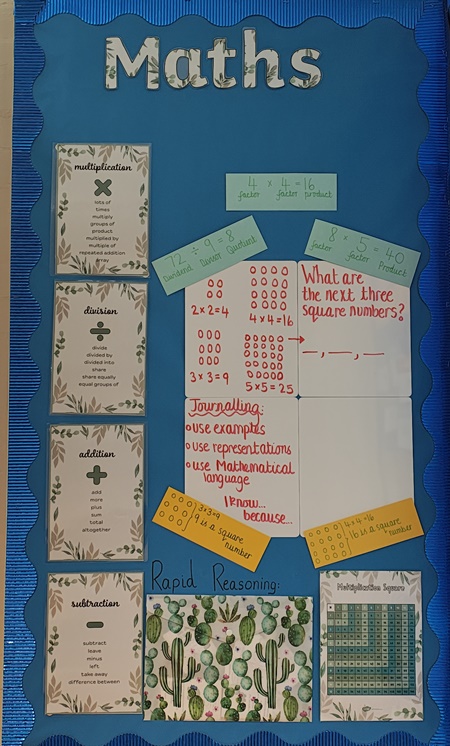 Maths
multiplication
×
lots of
times
multiply
groups of
product
multiplied by
multiple of
repeated addition
array
division
÷
divide
divided by
divided into
share
share equally
equal groups of
addition
+
add
more
plus
sum
total
altogether
subtraction
−
subtract
leave
minus
left
take away
difference between
4 × 4 = 16
factor factor product
72 ÷ 9 = 8
Dividend Divisor Quotient
8 × 5 = 40
factor factor Product
2×2=4
4×4=16
3×3=9
5×5=25
What are
the next three
square numbers?
_, _, _
Journalling:
use examples
use representations
use Mathematical
language
I know...
because...
3×3=9
9 is a square
number
4×4=16
16 is a square
number
Rapid Reasoning:
Multiplication Square